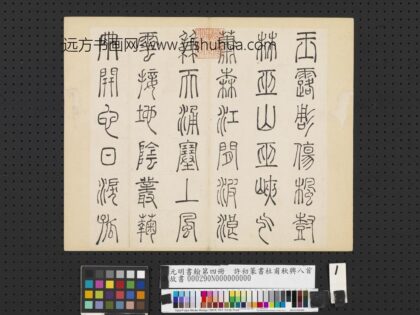 远方书画网: www.yfshuhua.com
玉露彫傷楓樹
林巫山巫峽气
蕭森江間波浪
兼天涌塞上風
雲接地陰叢菊
兩開他日淚孤
元明書翰第四冊　許初篆書杜甫秋興八首
故書 000290N000000000
1